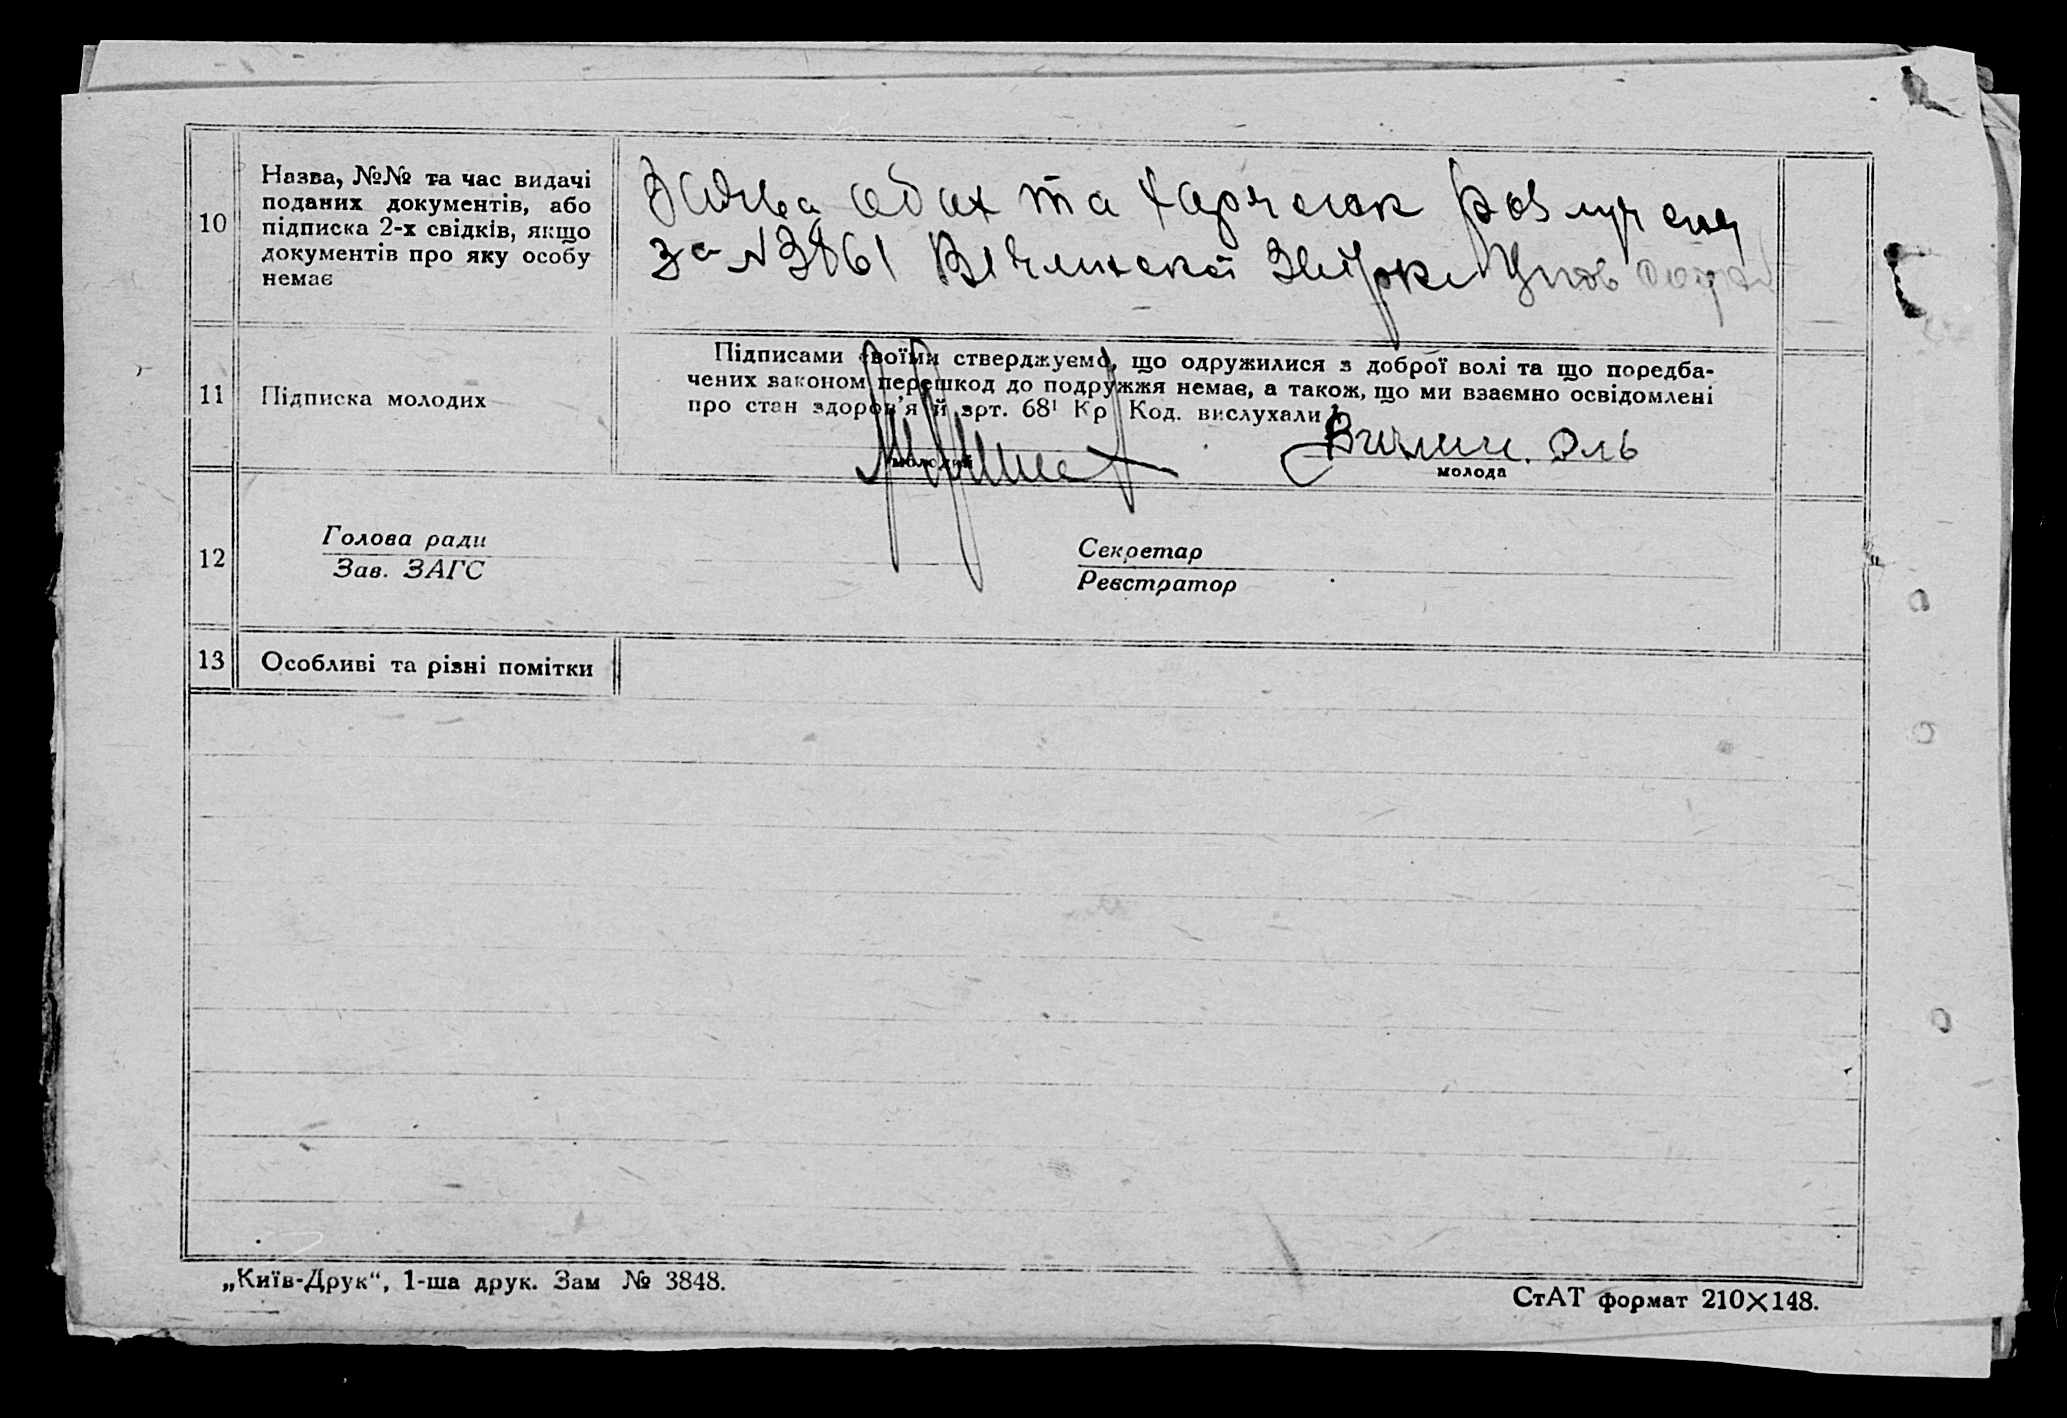 10
Назва, №№ та час видачі
поданих документів, або
підписка 2-х свідків, якщо
документів про яку особу
немає
Заява обох та
за №3861
11
Підписка молодих
Підписами своїми стверджуємо, що одружилися з доброї волі та що передба-
чених законом перешкод до подружжя немає, а також, що ми взаємно освідомлені
про стан здоров’я й арт. 68¹ Кр Код. вислухали
молодий
молода
12
Голова ради
Зав. ЗАГС
Секретар
Реєстратор
13
Особливі та різні помітки
„Київ-Друк“, 1-ша друк. Зам № 3848.
СтАТ формат 210×148.